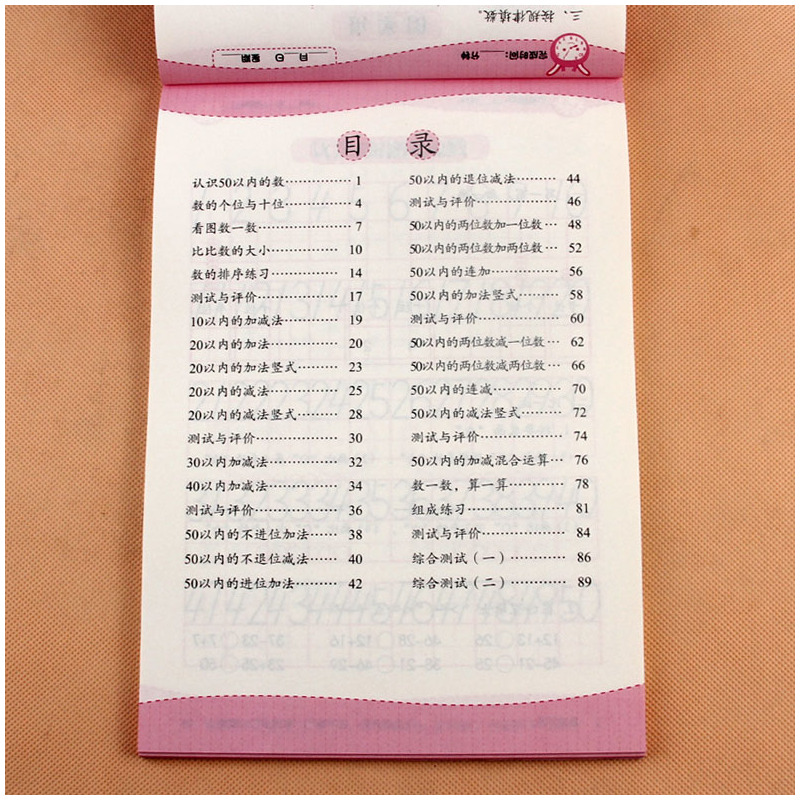 三、按规律填数。
完成时间：____分钟 ____月____日 星期____
目 录
认识50以内的数………… 1
数的个位与十位………… 4
看图数一数……………… 7
比比数的大小…………… 10
数的排序练习…………… 14
测试与评价……………… 17
10以内的加减法………… 19
20以内的加法…………… 20
20以内的加法竖式……… 23
20以内的减法…………… 25
20以内的减法竖式……… 28
测试与评价……………… 30
30以内加减法…………… 32
40以内加减法…………… 34
测试与评价……………… 36
50以内的不进位加法…… 38
50以内的不退位减法…… 40
50以内的进位加法……… 42
50以内的退位减法……… 44
测试与评价……………… 46
50以内的两位数加一位数… 48
50以内的两位数加两位数… 52
50以内的连加…………… 56
50以内的加法竖式……… 58
测试与评价……………… 60
50以内的两位数减一位数… 62
50以内的两位数减两位数… 66
50以内的连减…………… 70
50以内的减法竖式……… 72
测试与评价……………… 74
50以内的加减混合运算… 76
数一数，算一算………… 78
组成练习………………… 81
测试与评价……………… 84
综合测试（一）………… 86
综合测试（二）………… 89